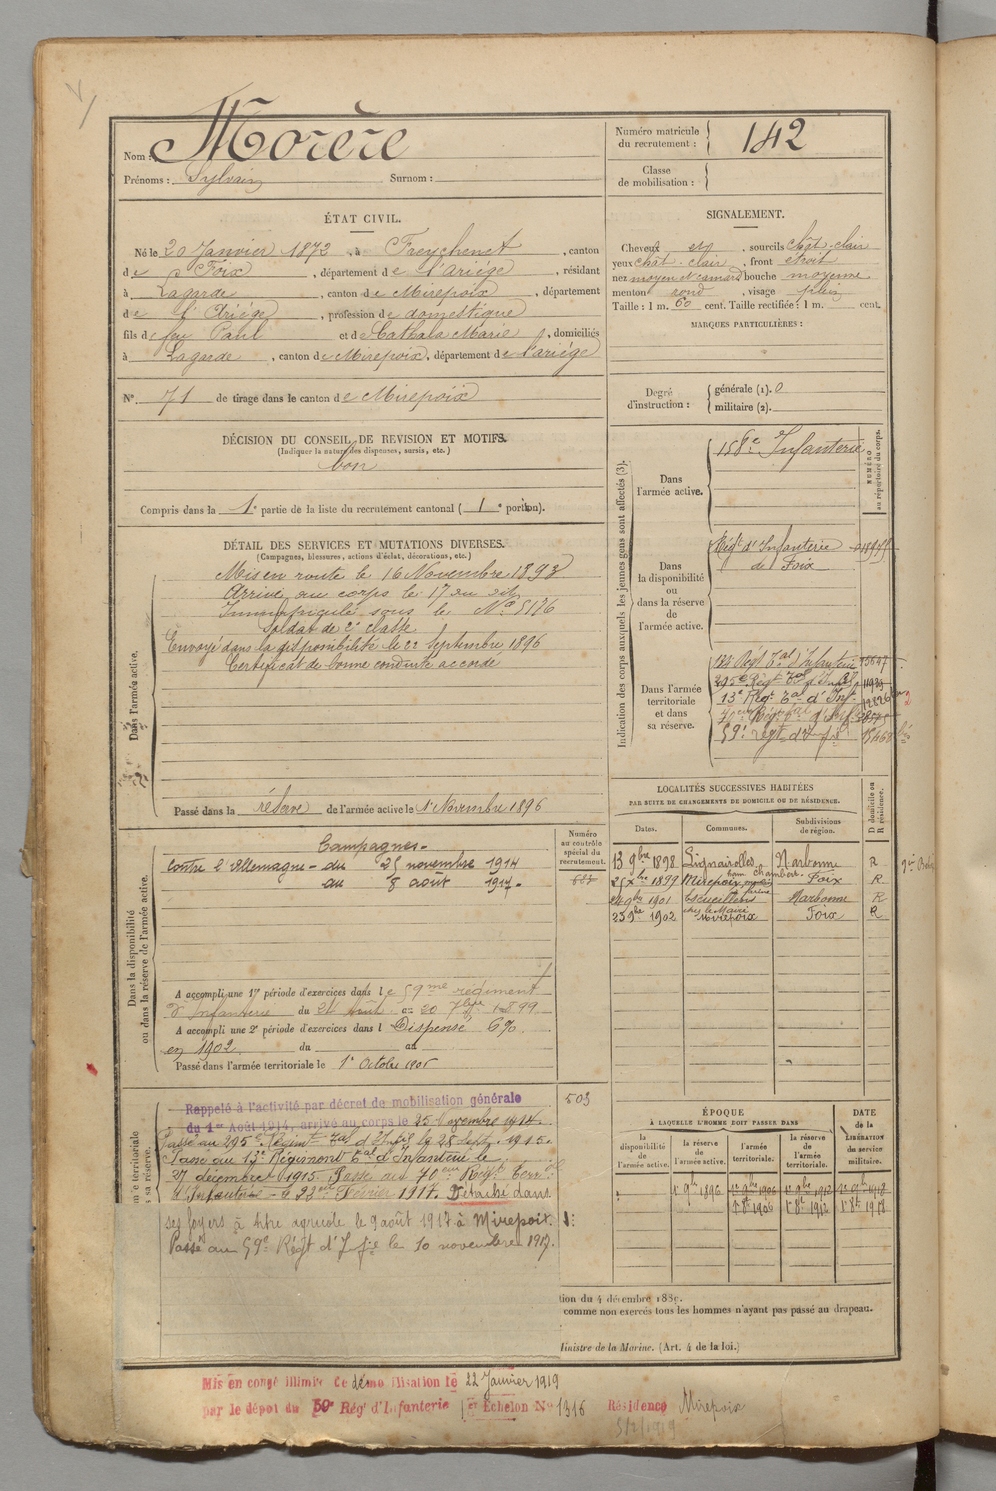 Nom : Morère
Prénoms : Sylvain Surnom :
Numéro matricule du recrutement : 142
Classe de mobilisation :
ÉTAT CIVIL.
Né le 20 Janvier 1872, à Freychenet, canton
de Foix, département de l'Ariège, résidant
à Lagarde, canton de Mirepoix, département
de l'Ariège, profession de domestique
fils de feu Paul et de Cathala Marie, domiciliés
à Lagarde, canton de Mirepoix, département de l'ariège
N° 71 de tirage dans le canton de Mirepoix
DÉCISION DU CONSEIL DE REVISION ET MOTIFS.
(Indiquer la nature des dispenses, sursis, etc.)
bon
Compris dans la 1e partie de la liste du recrutement cantonal ( 1e portion).
SIGNALEMENT.
Cheveux et, sourcils chât. clair
yeux chât. clair, front étroit
nez moyen et camard bouche moyenne
menton rond, visage plein
Taille : 1 m. 60 cent. Taille rectifiée : 1 m. cent.
MARQUES PARTICULIÈRES :
Degré d'instruction : générale (1). 0
militaire (2).
DÉTAIL DES SERVICES ET MUTATIONS DIVERSES.
(Campagnes, blessures, actions d'éclat, décorations, etc.)
Dans l'armée active.
Mis en route le 16 Novembre 1893
Arrivé au corps le 17 du dit
Immatriculé sous le No 5176
Soldat de 2e classe
Envoyé dans la disponibilité le 22 Septembre 1896
Certificat de bonne conduite accordé
Passé dans la réserve de l'armée active le 1er Novembre 1896
Indication des corps auxquels les jeunes gens sont affectés (3).
NUMÉRO au répertoire du corps.
Dans l'armée active.
158e Infanterie
Dans la disponibilité ou dans la réserve de l'armée active.
Régt d'Infanterie
de Foix
Dans l'armée territoriale et dans sa réserve.
Régt Tal d'Infanterie
295e Régt Tal d'Inf
13e Régt Tal d'Inf
59e régt d'Inf
LOCALITÉS SUCCESSIVES HABITÉES
PAR SUITE DE CHANGEMENTS DE DOMICILE OU DE RÉSIDENCE.
Dates. Communes. Subdivisions de région. D domicile ou R résidence.
13 9bre 1898 Lignairolles Narbonne R
25 Xbre 1899 Mirepoix Foix R
24 9bre 1901 Escueillens Narbonne R
23 9bre 1902 chez le Maire Mirepoix Foix R
Dans la disponibilité ou dans la réserve de l'armée active.
Numéro au contrôle spécial du recrutement.
Campagnes
contre l'Allemagne - du 25 novembre 1914
au 8 août 1917.
A accompli une 1re période d'exercices dans le 59me régiment
d'Infanterie du 24 Août au 20 7bre 1899
A accompli une 2e période d'exercices dans l Dispensé 6%
en 1902 du au
Passé dans l'armée territoriale le 1er Octobre 1906
503
Rappelé à l'activité par décret de mobilisation générale
du 1er Août 1914, arrivé au corps le 25 Novembre 1914.
Passé au 295e Régiment Tal d'Infie le 28 Sept. 1915.
Passé au 13e Régiment Tal d'Infanterie le
27 décembre 1915. Passé au 70eme Régt Terrial
d'Infanterie le 23 Février 1917. Détaché dans
ses foyers à titre agricole le 9 août 1917 à Mirepoix.
Passé au 59e Régt d'Infie le 10 novembre 1917.
ÉPOQUE
À LAQUELLE L'HOMME DOIT PASSER DANS
la disponibilité de l'armée active. la réserve de l'armée active. l'armée territoriale. la réserve de l'armée territoriale.
DATE de la LIBÉRATION du service militaire.
1er 9bre 1896 1er 9bre 1906 1er 9bre 1912 1er 9bre 1918
1er 8bre 1906 1er 8bre 1912 1er 8bre 1918
tion du 4 décembre 1889.
comme non exercés tous les hommes n'ayant pas passé au drapeau.
Ministre de la Marine. (Art. 4 de la loi.)
Mis en congé illimité de démobilisation le 22 Janvier 1919
par le dépôt du 59e Régt d'Infanterie 1er Échelon No 1316 Résidence Mirepoix